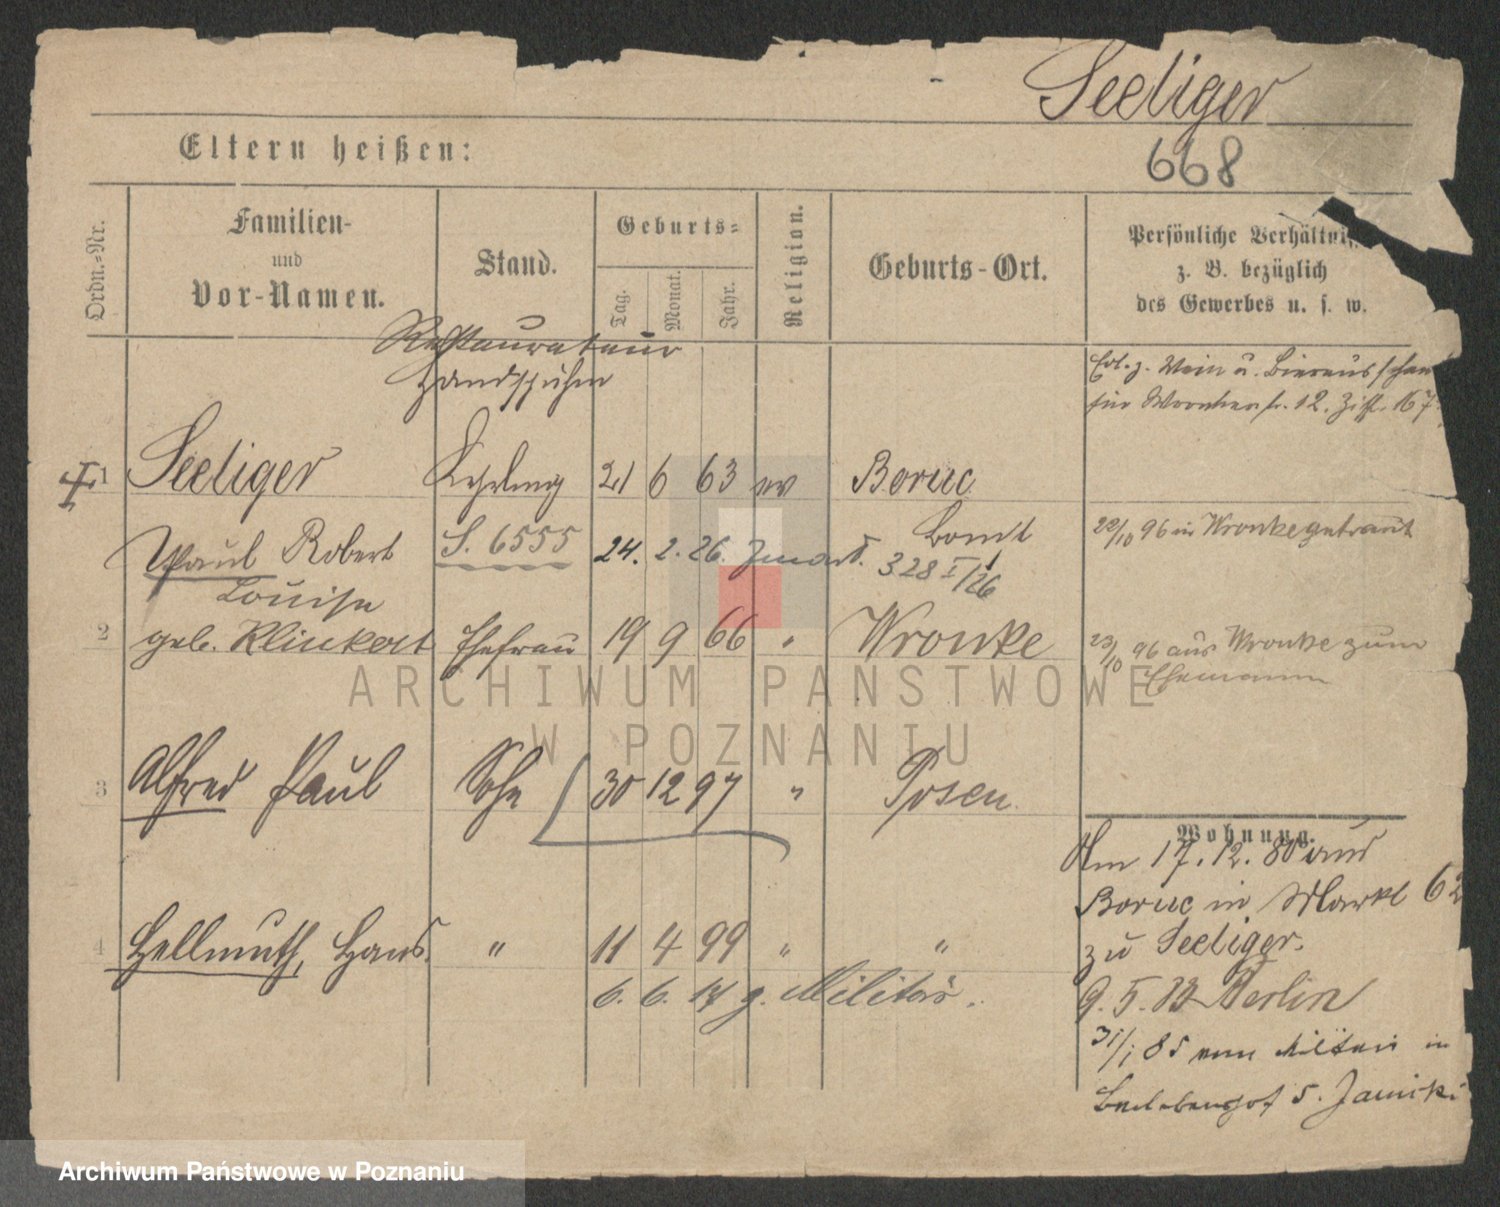 Seeliger
668
Eltern heißen:
Ordn.-Nr.
Familien-
und
Vor-Namen.
Stand.
Geburts-
Tag.
Monat.
Jahr.
Religion.
Geburts-Ort.
Persönliche Verhältnis
z. B. bezüglich
des Gewerbes u. s. w.
Restaurateur
Erl. z. Wein u. Bierausschan
für Wronkerstr. 12.
1 Seeliger Lehrling 21 6 63 ev Boruc
Paul Robert S. 6555 24. 2. 26. Bomst
328 I/26
22/10 96 in Wronke getraut
Louise
2 geb. Klinkert Ehefrau 19 9 66 " Wronke
23/10 96 aus Wronke zum
Ehemann
ARCHIWUM PAŃSTWOWE
W POZNANIU
3 Alfred Paul Sohn 30 12 97 " Posen
Wohnung.
Am 17. 12. 80 aus
Boruc in Markt 62
zu Seeliger.
4 Hellmuth, Hans. " 11 4 99 " "
6. 6. 17 z. Militär.
9. 5. 83 Berlin
31/1 85 vom Militär in
5.
Archiwum Państwowe w Poznaniu